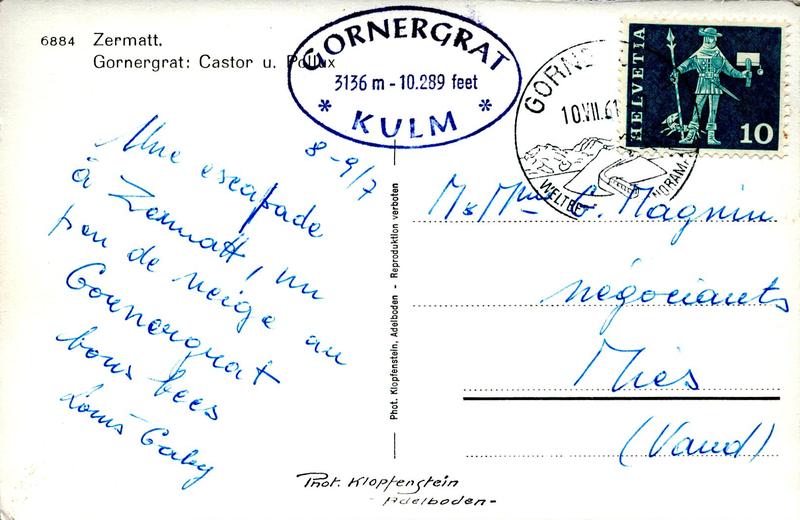 6884 Zermatt.
Gornergrat: Castor u. Pollux
GORNERGRAT
3136 m - 10.289 feet
* KULM *
10.VII.61
HELVETIA
10
8-9/7
Une escapade
à Zermatt, un
peu de neige au
Gornergrat
bons becs
Louis-Gaby
Phot. Klopfenstein, Adelboden - Reproduktion verboten
G. Magnin
négociants
Mies
(Vaud)
Phot. Klopfenstein
- Adelboden -